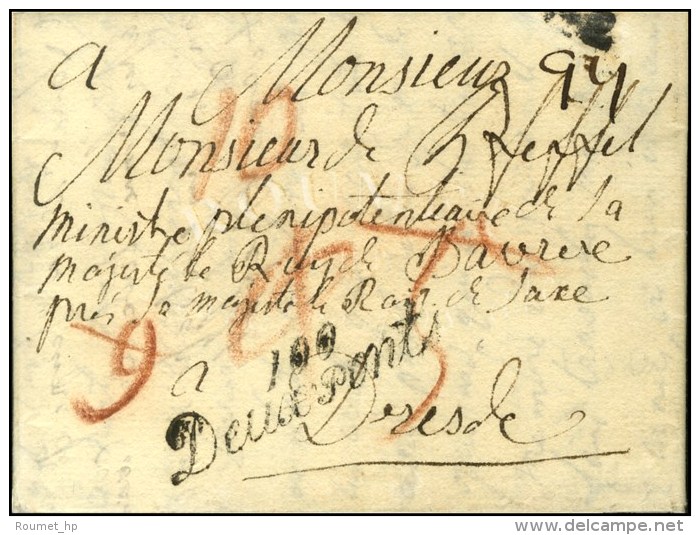 a Monsieur
Monsieur de Pfeffel
ministre plenipotentiaire de sa
majesté le Roy de Baviere
près sa majesté le Roy de Saxe
a
100
Deux-Ponts
Dresde
10
Roumet_hp
www.delcampe.net